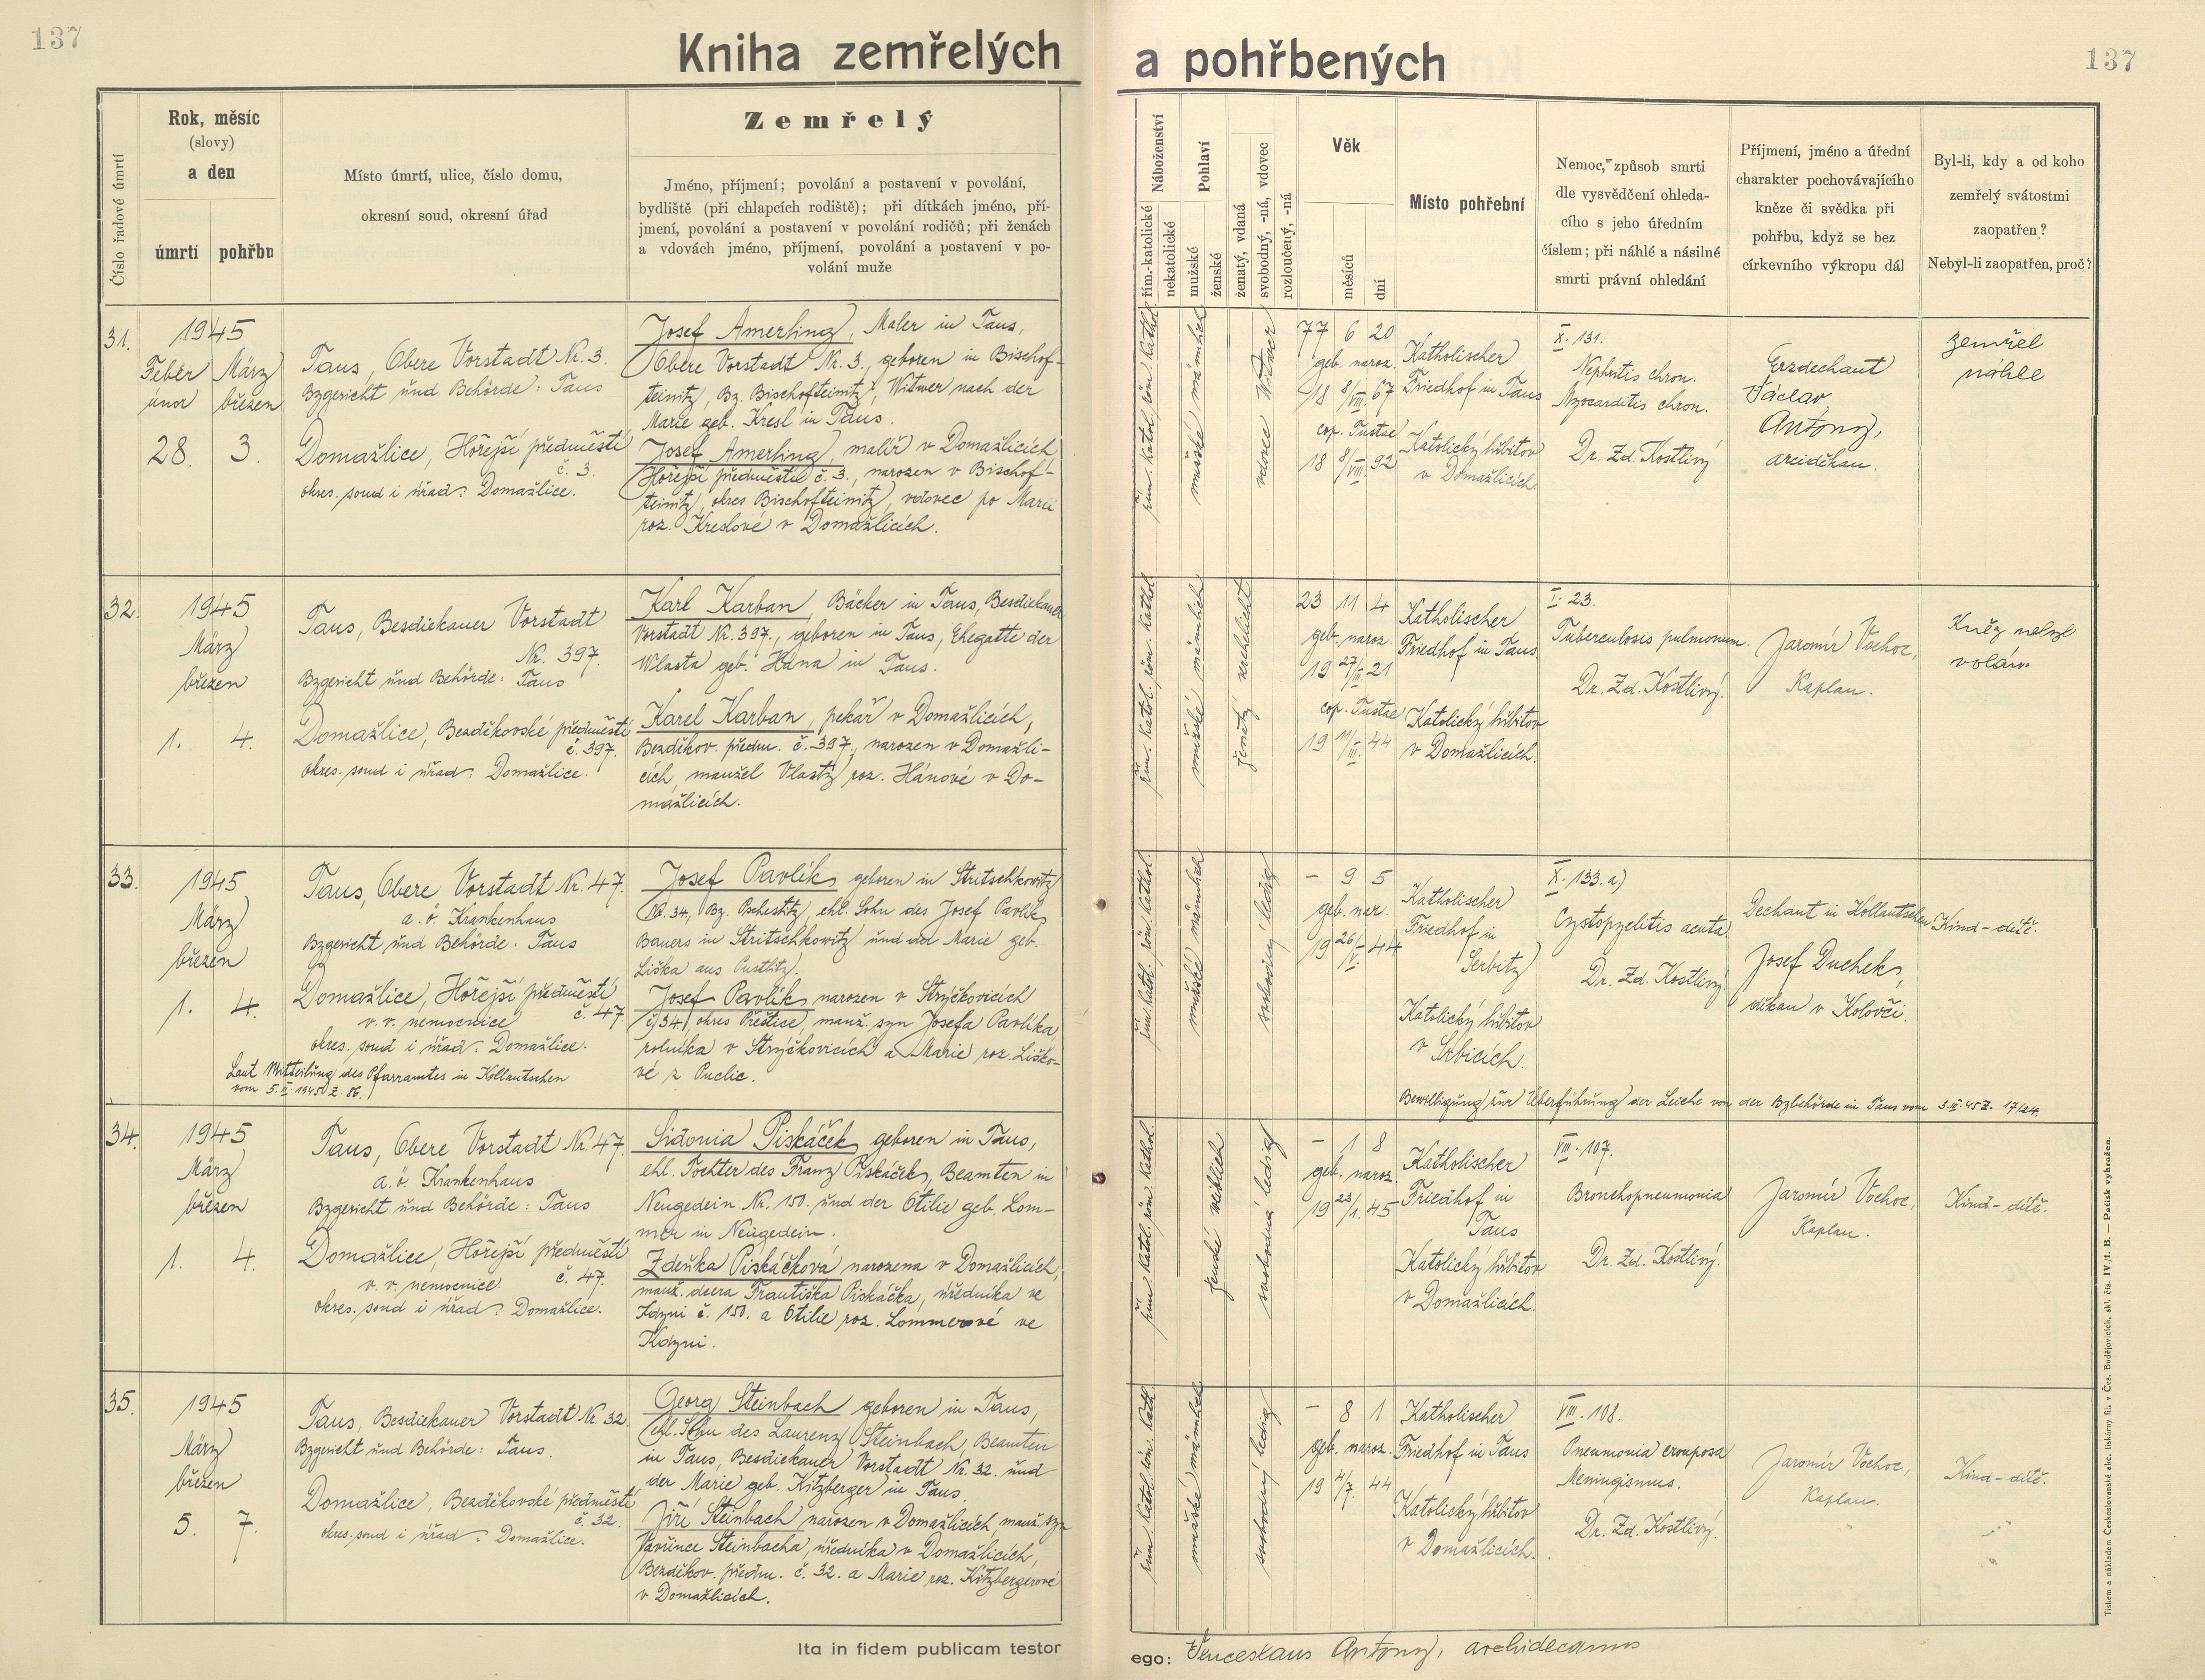 137
Kniha zemřelých
a pohřbených
137
Číslo řadové úmrtí
Rok, měsíc
(slovy)
a den
úmrtí
pohřbu
Místo úmrtí, ulice, číslo domu,
okresní soud, okresní úřad
Zemřelý
Jméno, příjmení; povolání a postavení v povolání,
bydliště (při chlapcích rodiště); při dítkách jméno, pří-
jmení, povolání a postavení v povolání rodičů; při ženách
a vdovách jméno, příjmení, povolání a postavení v po-
volání muže
Náboženství
řím.-katolické
nekatolické
Pohlaví
mužské
ženské
ženatý, vdaná
svobodný, -ná, vdovec
rozloučený, -ná
Věk
měsíců
dní
Místo pohřební
Nemoc, způsob smrti
dle vysvědčení ohleda-
cího s jeho úředním
číslem; při náhlé a násilné
smrti právní ohledání
Příjmení, jméno a úřední
charakter pochovávajícího
kněze či svědka při
pohřbu, když se bez
církevního výkropu dál
Byl-li, kdy a od koho
zemřelý svátostmi
zaopatřen?
Nebyl-li zaopatřen, proč?
31.
1945
Feber März
únor březen
28. 3.
Taus, Obere Vorstadt Nr. 3.
Bzgericht und Behörde: Taus
Domažlice, Hořejší předměstí
č. 3.
okres. soud i úřad: Domažlice.
Josef Amerling, Maler in Taus,
Obere Vorstadt Nr. 3., geboren in Bischof-
teinitz, Bz. Bischofteinitz, Witwer nach der
Marie geb. Kresl in Taus.
Josef Amerling, malíř v Domažlicích
Hořejší předměstí č. 3., narozen v Bischof-
teinitz, okres Bischofteinitz, vdovec po Marii
roz. Kreslové v Domažlicích.
řím. katol. röm. kathol.
mužské männlich
vdovec Witwer
77 6 20
geb. naroz.
18 8/VIII. 67
cop. Tustae
18 8/VIII. 92
Katholischer
Friedhof in Taus
Katolický hřbitov
v Domažlicích.
X. 131.
Nephritis chron.
Myocarditis chron.
Dr. Zd. Kostlivý
Erzdechant
Václav
Antony,
arciděkan.
zemřel
náhle
32.
1945
März
březen
1. 4.
Taus, Besdiekauer Vorstadt
Nr. 397.
Bzgericht und Behörde: Taus
Domažlice, Bezděkovské předměstí
č. 397.
okres. soud i úřad: Domažlice.
Karl Karban, Bäcker in Taus, Besdiekauer
Vorstadt Nr. 397., geboren in Taus, Ehegatte der
Wlasta geb. Hána in Taus.
Karel Karban, pekař v Domažlicích,
Bezděkov. předm. č. 397., narozen v Domažli-
cích, manžel Vlasty roz. Hánové v Do-
mažlicích.
řím. katol. röm. kathol.
mužské männlich
ženatý verehelicht
23 11 4
geb. naroz.
19 27/III. 21
cop. Tustae
19 11/III. 44
Katholischer
Friedhof in Taus.
Katolický hřbitov
v Domažlicích.
I. 23.
Tuberculosis pulmonum.
Dr. Zd. Kostlivý.
Jaromír Vochoc,
Kaplan.
Kněz nebyl
volán.
33.
1945
März
březen
1. 4.
Taus, Obere Vorstadt Nr. 47.
a. ö. Krankenhaus
Bzgericht und Behörde. Taus
Domažlice, Hořejší předměstí
v. v. nemocnice č. 47
okres. soud i úřad: Domažlice.
Laut Mitteilung des Pfarramtes in Kollautschen
Josef Pavlík, geboren in Stritschkowitz
Nr. 34, Bz. Pschestitz, ehl. Sohn des Josef Pavlík,
Bauers in Stritschkowitz und der Marie geb.
Liška aus
Josef Pavlík narozen v Strýčkovicích
č. 34, okres Přeštice, manž. syn Josefa Pavlíka,
rolníka v Strýčkovicích a Marie roz. Liško-
vé z Puclic.
řím. kathol. röm. kathol.
mužské männlich
svobodný ledig
- 9 5
geb. nar.
19 26/V. 44
Katholischer
Friedhof in
Serbitz
Katolický hřbitov
v Srbicích.
X. 133. a)
Cystopyelitis acuta
Dr. Zd. Kostlivý.
Dechant in Kollautschen
Josef Duchek,
děkan v Kolovči.
Kind-dítě.
Bewilligung zur Überführung der Leiche von der Bzbehörde in Taus vom 3.III.45 Z. 17/24.
34.
1945
März
březen
1. 4.
Taus, Obere Vorstadt Nr. 47.
a. ö. Krankenhaus
Bzgericht und Behörde: Taus
Domažlice, Hořejší předměstí
v. v. nemocnice č. 47.
okres. soud i úřad: Domažlice.
Sidonia Piskáček, geboren in Taus,
ehl. Tochter des Franz Piskáček, Beamten in
Neugedein Nr. 150. und der Otilie geb. Lom-
mer in Neugedein.
Zdeňka Piskáčková narozena v Domažlicích,
manž. dcera Františka Piskáčka, úředníka ve
Kdyni č. 150. a Otilie roz. Lommerové ve
Kdyni.
řím. katol. röm. kathol.
ženské weiblich
svobodná ledig
- 1 8
geb. naroz.
19 23/1. 45
Katholischer
Friedhof in
Taus
Katolický hřbitov
v Domažlicích.
VIII. 107.
Bronchopneumonia
Dr. Zd. Kostlivý.
Jaromír Vochoc,
Kaplan.
Kind-dítě.
35.
1945
März
březen
5. 7.
Taus, Besdiekauer Vorstadt Nr. 32.
Bzgericht und Behörde: Taus.
Domažlice, Bezděkovské předměstí
č. 32.
okres. soud i úřad: Domažlice.
Georg Steinbach geboren in Taus,
ehl. Sohn des Laurenz Steinbach, Beamten
in Taus, Besdiekauer Vorstadt Nr. 32. und
der Marie geb. Kitzberger in Taus.
Jiří Steinbach narozen v Domažlicích, manž. syn
Vavřince Steinbacha, úředníka v Domažlicích,
Bezděkov. předm. č. 32. a Marie roz. Kitzbergerové
v Domažlicích.
řím. katol. röm. kath.
mužské männlich
svobodný ledig
- 8 1
geb. naroz.
19 4/7. 44
Katholischer
Friedhof in Taus
Katolický hřbitov
v Domažlicích.
VIII. 108.
Pneumonia crouposa
Meningismus.
Dr. Zd. Kostlivý.
Jaromír Vochoc,
Kaplan.
Kind-dítě.
Ita in fidem publicam testor
ego: Venceslaus Antony, archidecanus
Tiskem a nákladem Českoslovanské akc. tiskárny fil. v Čes. Budějovicích, skl. čís. IV./1. B. — Patisk vyhražen.